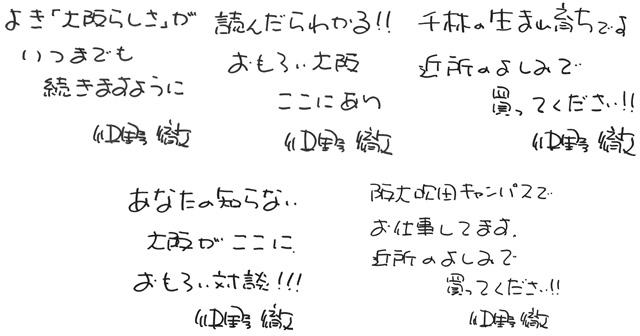 よき「大阪らしさ」が
いつまでも
続きますように
仲野 徹
読んだらわかる!!
おもろい大阪
ここにあり
仲野 徹
千林の生まれ育ちです
近所のよしみで
買ってください!!
仲野 徹
あなたの知らない
大阪がここに
おもろい対談!!!
仲野 徹
阪大吹田キャンパスで
お仕事してます.
近所のよしみで
買ってください!!
仲野 徹